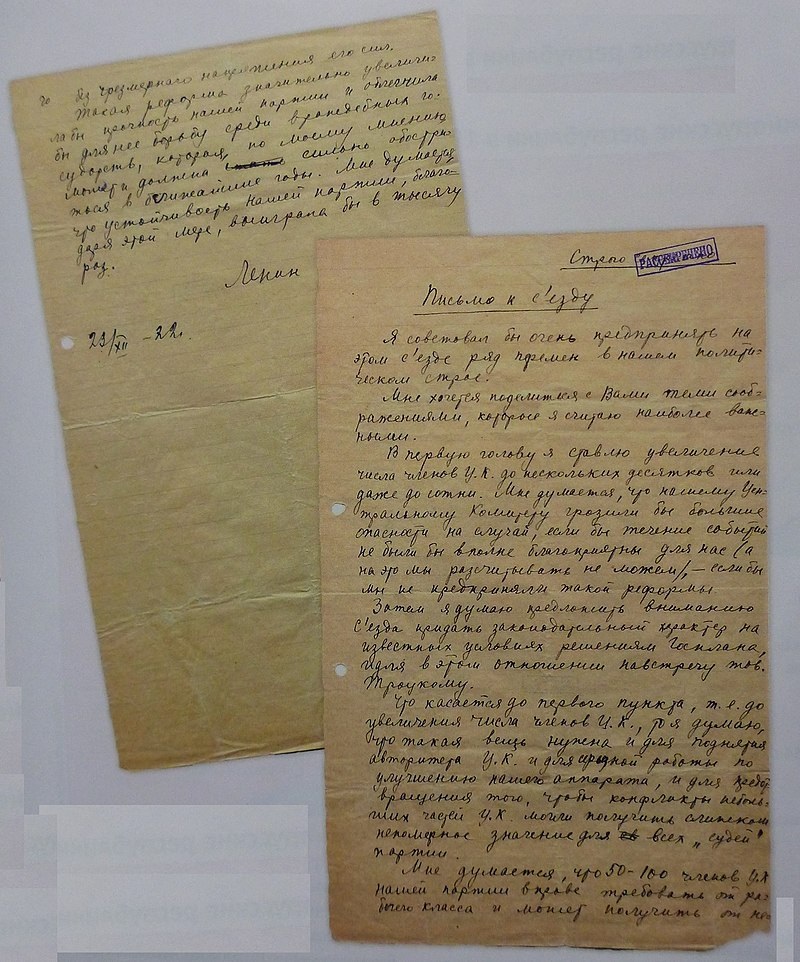 Строго
РАССЕКРЕЧЕНО
Письмо к с'езду
Я советовал бы очень предпринять на
этом с'езде ряд перемен в нашем полити=
ческом строе.
Мне хочется поделиться с Вами теми сооб=
ражениями, которые я считаю наиболее важ=
ными.
В первую голову я ставлю увеличение
числа членов Ц.К. до нескольких десятков или
даже до сотни. Мне думается, что нашему Цен=
тральному Комитету грозили бы большие
опасности на случай, если бы течение событий
не были бы вполне благоприятны для нас (а
на это мы расчитывать не можем), – если бы
мы не предприняли такой реформы.
Затем я думаю предложить вниманию
с'езда придать законодательный характер на
известных условиях решениям Госплана,
идя в этом отношении навстречу тов.
Троцкому.
Что касается до первого пункта, т.е. до
увеличения числа членов Ц.К., то я думаю,
что такая вещь нужна и для поднятия
авторитета Ц.К. и для работы по
улучшению нашего аппарата, и для предот
вращения того, чтобы конфликты неболь=
ших частей Ц.К. могли получить слишком
непомерное значение для всех „судеб"
партии.
Мне думается, что 50-100 членов Ц.К
нашей партии вправе требовать от ра=
бочего класса и может получить от не=
го без чрезмерного напряжения его сил.
Такая реформа значительно увеличи=
ла бы прочность нашей партии и облегчила
бы для нее борьбу среди враждебных го=
сударств, которая, по моему мнению
может и должна сильно обострит=
ься в ближайшие годы. Мне думается
что устойчивость нашей партии, благо=
даря этой мере, выиграла бы в тысячу
раз.
Ленин
23/XII – 22г.